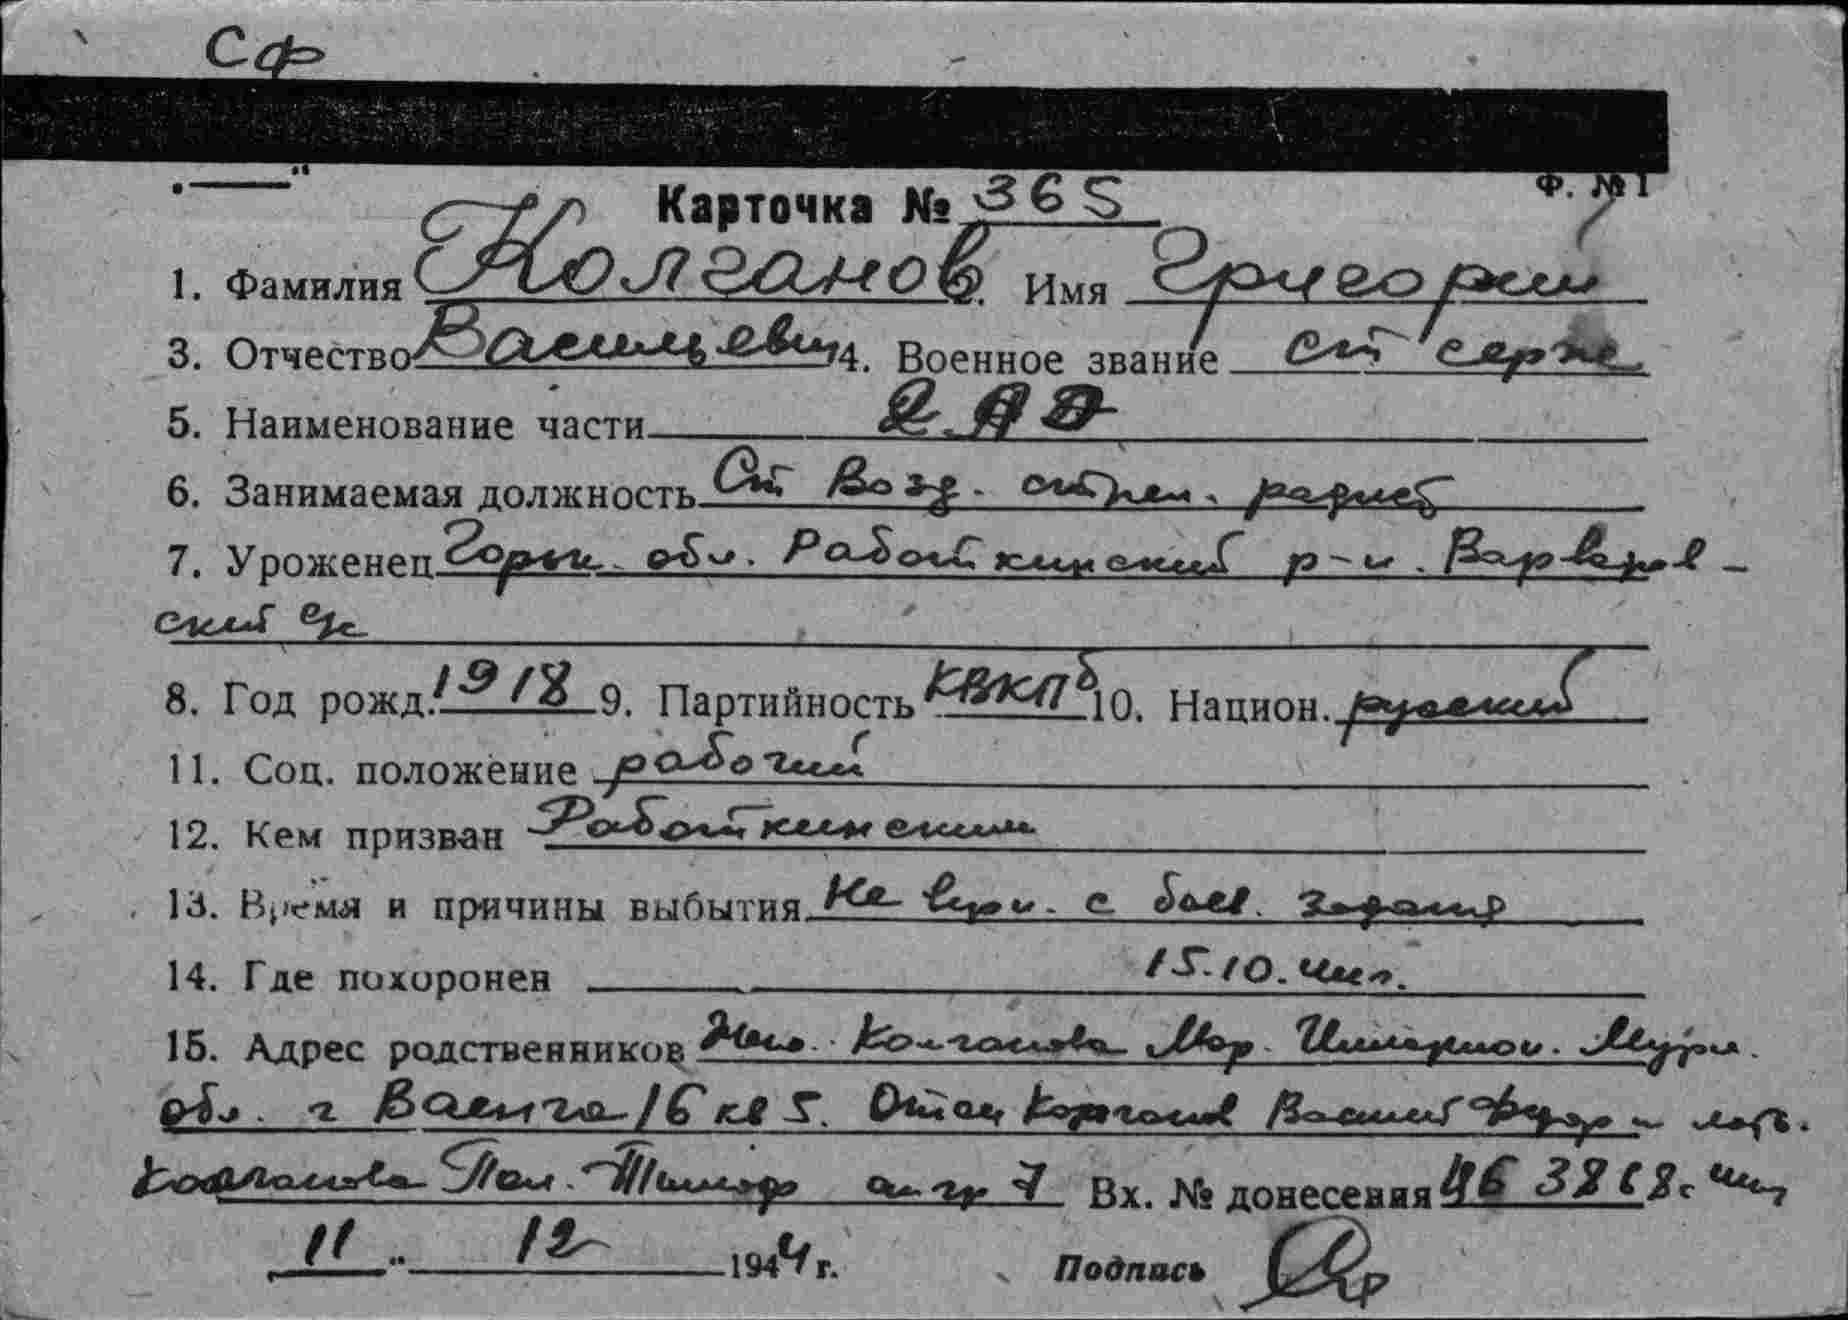 СФ
Ф. № 1
Карточка № 365
1. Фамилия Колганов. Имя Григорий
3. Отчество Васильевич 4. Военное звание Ст серж.
5. Наименование части
6. Занимаемая должность Ст Возд. стрел. радист
7. Уроженец Горьк. обл. Работкинский р-н. Варваров-
ский с/с
8. Год рожд. 1918 9. Партийность КВКПб 10. Национ. русский
11. Соц. положение рабочий
12. Кем призван Работкинским
13. Время и причины выбытия Не верн. с боев. задания
14. Где похоронен 15.10.
15. Адрес родственников Жена. Колганова Мар. Мурм.
обл. г Ваенга 16 кв 5. Отец Колганов Василий Федор и мать.
Колганова Пел. Тимоф Вх. № донесения
11 " 12 1944 г. Подпись